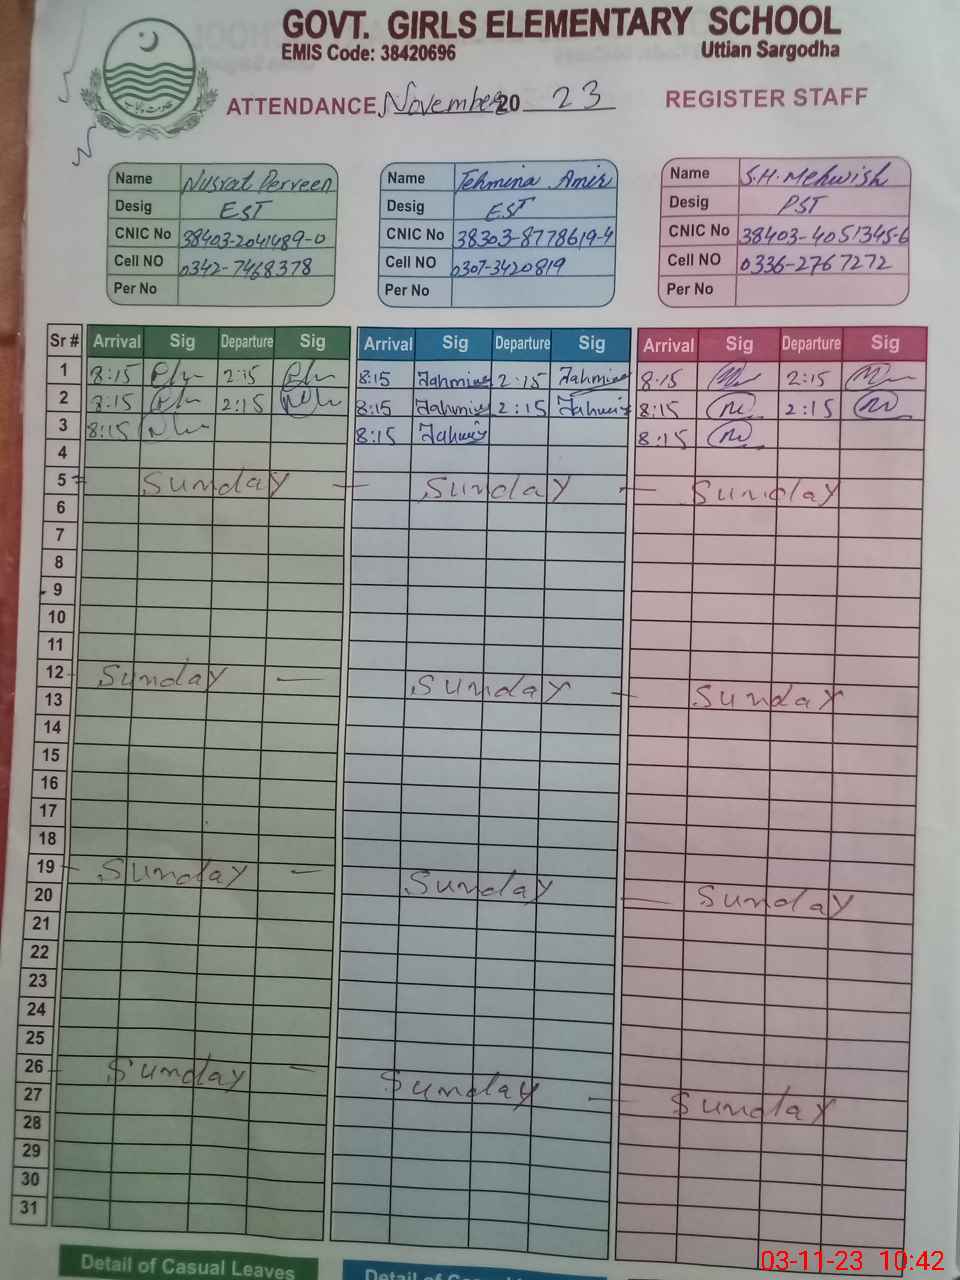 GOVT. GIRLS ELEMENTARY SCHOOL
EMIS Code: 38420696 Uttian Sargodha
ATTENDANCE, November 20 23 REGISTER STAFF
Name Nusrat Perveen
Desig EST
CNIC No 38403-2041489-0
Cell NO 0342-7468378
Per No
Name Tehmina Amir
Desig EST
CNIC No 38303-8778619-4
Cell NO 0307-3420819
Per No
Name S.H. Mehwish
Desig PST
CNIC No 38403-4051345-6
Cell NO 0336-2767272
Per No
Sr # Arrival Sig Departure Sig Arrival Sig Departure Sig Arrival Sig Departure Sig
1 8:15 2:15 8:15 2:15 8:15 2:15
2 8:15 2:15 8:15 2:15 8:15 2:15
3 8:15 8:15 8:15
4
5 Sunday — Sunday — Sunday
6
7
8
9
10
11
12 Sunday — Sunday — Sunday
13
14
15
16
17
18
19 Sunday — Sunday — Sunday
20
21
22
23
24
25
26 Sunday — Sunday — Sunday
27
28
29
30
31
Detail of Casual Leaves
03-11-23 10:42